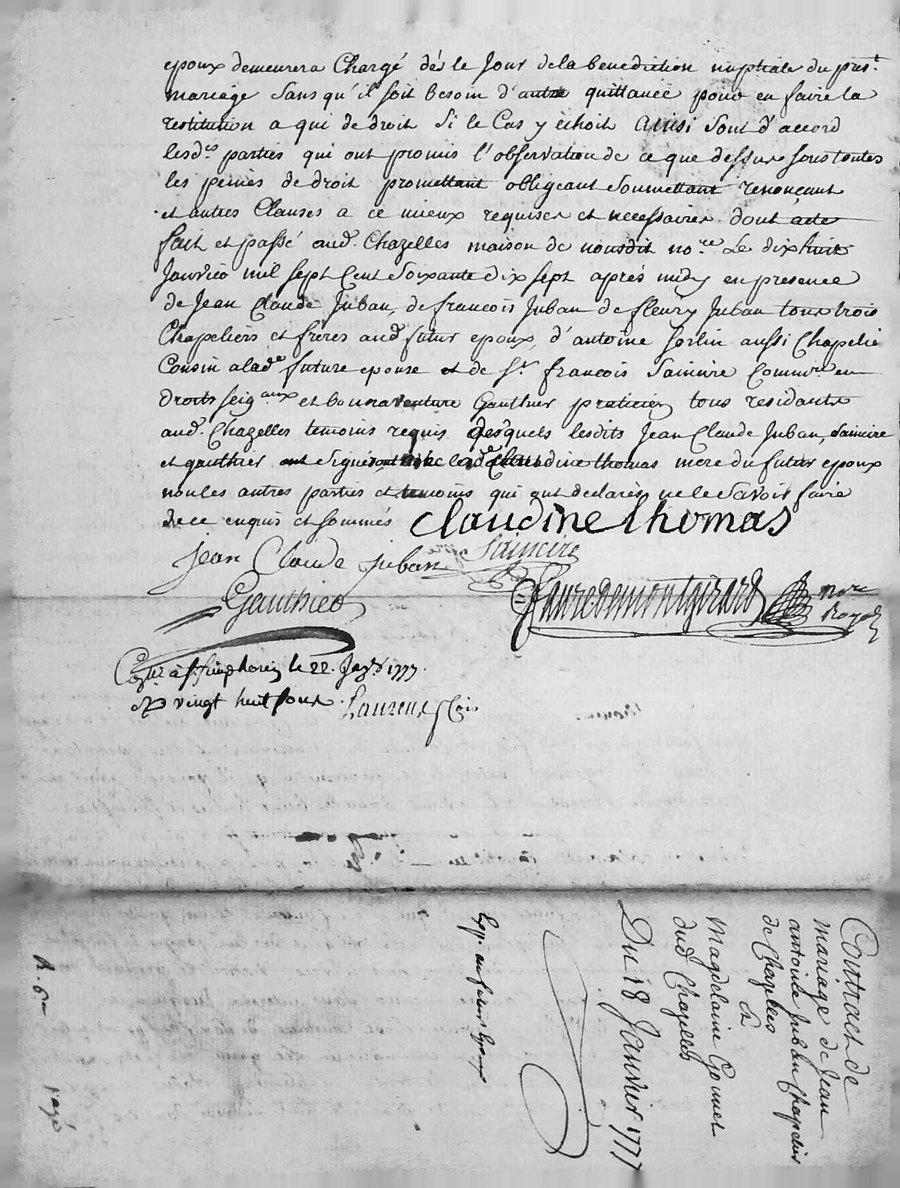 epoux demeurera Chargé dès le Jour de la benediction nuptiale du prést
mariage sans qu'il soit besoin d'autre quittance pour en faire la
restitution a qui de droit si le Cas y echoit ainsi sont d'accord
lesdes parties qui ont promis l'observation de ce que dessus sous toutes
les peines de droit promettant obligeant soumettant renonçant
et autres Clauses a ce mieux requises et necessaires dont acte
fait et passé aud. Chazelles maison de nousdit nore Le dix huit
Janvier mil sept Cent soixante dix sept après midy en presence
de Jean Claude Juban, de francois Juban de fleury Juban tous trois
Chapeliers et frères aud futur epoux, d'antoine sorlin aussi Chapelie
Cousin a lade future epouse et de Sr francois Saincire Commre en
droits seigaux et bonnaventure Gauthier praticien tous residants
aud. Chazelles temoins requis desquels lesdits Jean Claude Juban, saincire
et gauthier ont signé avec lade Claudine thomas mere du futur epoux
non les autres parties et temoins qui ont declarés ne le savoir faire
de ce enquis et sommés Claudine thomas
Jean Claude Juban Saincire
Gauthier
faure de montgirard nore
Royal
Collé à St simphorien le 22. Janr 1777.
vingt huit sous. Laurens
Contract de
mariage de Jean
antoine Juban Chapelier
de Chazelles
a
Magdelaine Gonnet
dud Chazelles
Du 18 Janvier 1777
Exp. au futur Epoux
payé